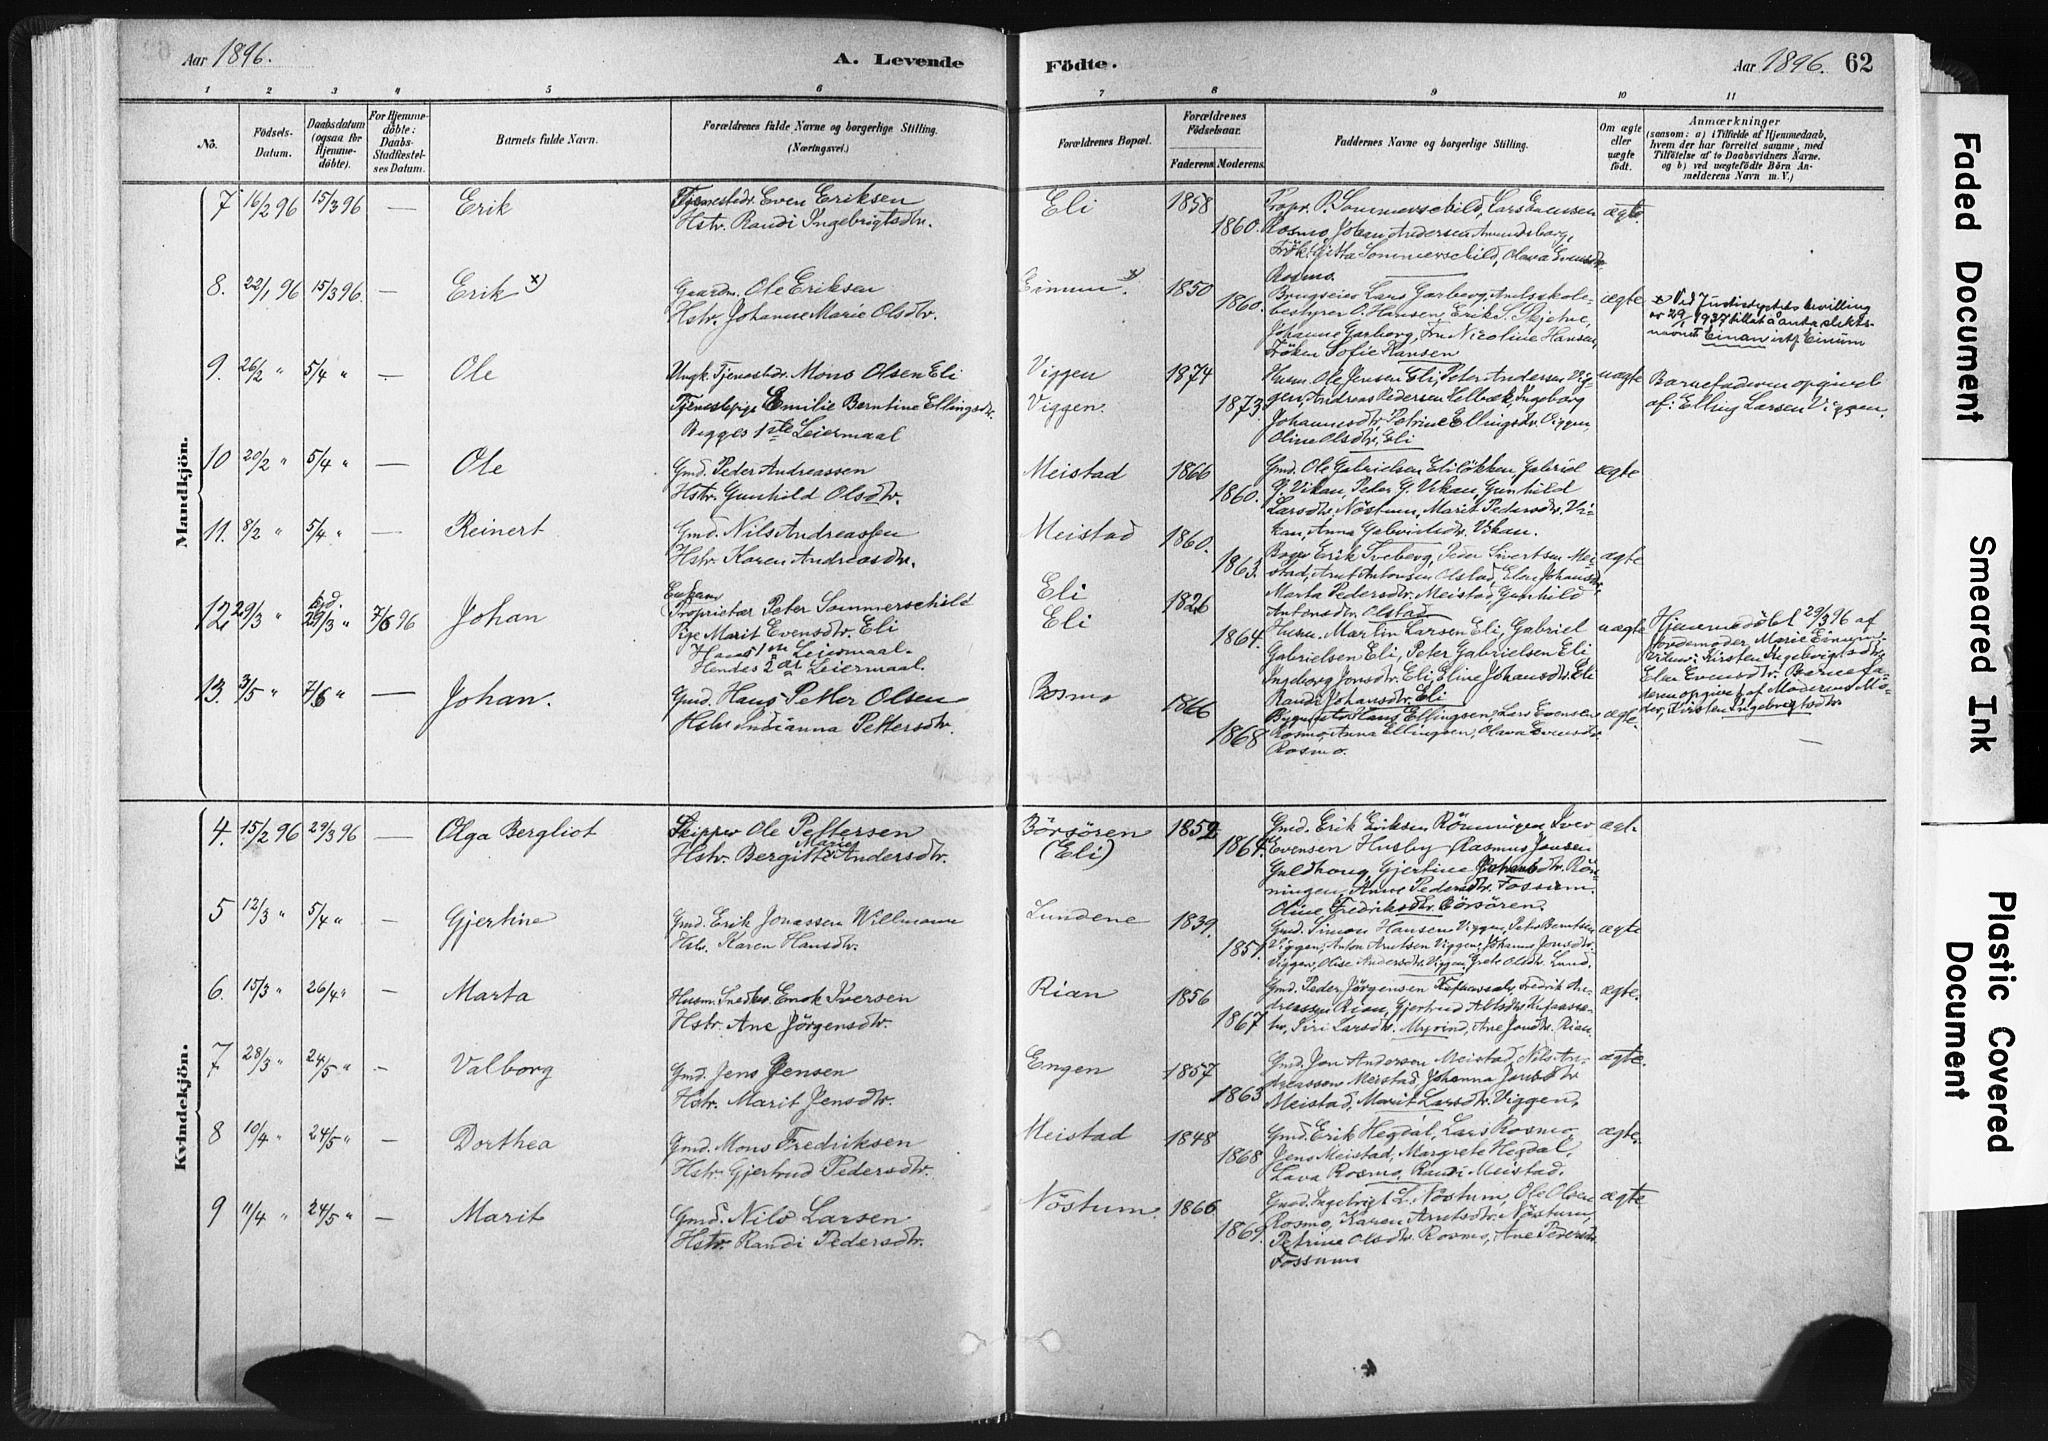 Aar 1896.
A. Levende
Födte.
Aar 1896. 62
1 2 3 4 5 6 7 8 9 10 11
No.
Födsels-
Datum.
Daabsdatum
(ogsaa for
Hjemme-
döbte).
For Hjemme-
döbte:
Daabs-
Stadfæstel-
ses Datum.
Barnets fulde Navn.
Forældrenes fulde Navne og borgerlige Stilling.
(Næringsvei.)
Forældrenes Bopæl.
Forældrenes
Födselsaar.
Faderens. Moderens.
Faddernes Navne og borgerlige Stilling.
Om ægte
eller
uægte
født.
Anmærkninger
(saasom: a) i Tilfælde af Hjemmedaab,
hvem der har forrettet samme, med
Tilföielse af to Daabsvidners Navne,
og b) ved uægtefödte Börn An-
melderens Navn m. V.)
Mandkjön.
7 16/2 96 15/3 96 — Erik
Tjenestedr. Even Eriksen
Hstr. Randi Ingebrigtsdtr.
Eli
1858
1860.
Propr. P. Sommerschild, Lars Evensen
Rosmo, Johan Andersen
Frök. Sommerschild, Olava Evensdtr.
Rosmo.
ægte
8. 22/1 96 15/3 96. — Erik x)
Gaardm. Ole Eriksen
Hstr. Johanne Marie Olsdtr.
Einum. x)
1850
1860.
Brugseier Lars Garberg, Amtsskole-
bestyrer O. Hansen, Erik S. Skjetne,
Johanne Garberg, Fru Nicoline Hansen,
Fröken Sofie Hansen
ægte
x Ved Justisdeptets bevilling
av 29/1 1937 tillat å anta slekts-
navnet Einan istf. Einum
9. 26/2 " 5/4 " — Ole
Ungk. Tjenestedr. Mons Olsen Eli
Tjenestepige Emilie Berntine Ellingsdtr.
Begges 1ste Leiermaal
Viggen
Viggen.
1874
1873.
Husm. Ole Jensen Eli, Peter Andersen Vig-
gen, Andreas Pedersen Selbæk, Ingeborg
Johannesdtr, Petrine Ellingsdtr. Viggen,
Oline Olsdtr. Eli
uægte
Barnefaderen opgivet
af: Elling Larsen Viggen.
10 20/2 " 5/4 " — Ole
Gmd. Peder Andreassen
Hstr. Gunhild Olsdtr.
Meistad
1866
1860.
Gmd. Ole Gabrielsen Elilökken, Gabriel
G. Vikan, Peder G. Vikan, Gunhild
Larsdtr. Nöstum, Marit Pedersdtr. Vi-
kan, Anna Gabrielsdtr. Vikan.
ægte
11. 8/2 " 5/4 " — Reinert
Gmd. Nils Andreassen
Hstr. Karen Andreasdtr.
Meistad
1860.
1863.
Erik Sveberg, Peder Sivertsen Mei-
stad, Arnt Antonsen Olstad, Elen Johansdtr.
Marta Pedersdtr. Meistad, Gunhild
Antonsdtr. Olstad
ægte
12. 29/3 " hjd. 29/3 " 7/6 96 Johan
Enkem.
Proprietær Peter Sommerschild
Pige Marit Evensdtr. Eli
Hans 1ste Leiermaal.
Hendes 2det Leiermaal.
Eli
Eli
1826
1864.
Husm. Martin Larsen Eli, Gabriel
Gabrielsen Eli, Peter Gabrielsen Eli
Ingeborg Jonsdtr. Eli, Eline Johansdtr. Eli
Randi Johansdtr. Eli
uægte
Hjemmedöbt 29/3 96 af
Jordemoder Marie Einum.
Vidner: Kirsten Ingebrigtsdtr.
Elen Evensdtr. Barnefa-
deren opgivet af Moderens Mo-
der, Kirsten Ingebrigtsdtr.
13. 3/5 " 7/6 " — Johan.
Gmd. Hans Petter Olsen
Hstr. Indianna Pettersdtr.
Rosmo
1866
1868
Bygmester Hans Ellingsen, Lars Evensen
Rosmo, Anna Ellingsen, Olava Evensdtr
Rosmo.
ægte.
Kvindekjön.
4. 15/2 96 29/3 96 — Olga Bergliot
Skipper Ole Pettersen
Hstr. Bergitte Marie Andersdtr.
Börsören
(Eli)
1852
1864.
Gmd. Erik Eriksen Rönningen, Iver
Evensen Husby, Rasmus Jonsen
Guldhaug, Gjertine Johansdtr. Rön-
ningen, Anne Pedersdtr. Fossum.
Oline Fredriksdtr. Börsören.
ægt.
5 12/3 " 5/4 " — Gjertine
Gmd. Erik Jonassen Willmann
Hstr. Karen Hansdtr.
Lundene
1839.
1851.
Gmd. Simon Hansen Viggen, Peter Berntsen
Viggen, Anton Arntsen Viggen, Johanna Jonsdtr.
Viggen, Olise Andersdtr. Viggen, Grete Olsdtr. Lund.
ægte
6. 15/3 " 26/4 " — Marta
Husm. Snedker Enok Iversen
Hstr. Ane Jörgensdtr.
Rian
1856
1867
Gmd. Peder Jörgensen Fredrik An-
dreassen Rian, Gjertrud
Siri Larsdtr. Myrind, Ane Jonsdtr. Rian
ægte.
7 28/3 " 24/5 " — Valborg
Gmd. Jens Jensen
Hstr. Marit Jensdtr.
Engen
1857
1863
Gmd. Jon Andersen Meistad, Nils An-
dreassen Meistad, Johanna Jonsdtr
Meistad, Marit Larsdtr. Viggen.
ægte.
8 10/4 " 24/5 " — Dorthea
Gmd. Mons Fredriksen
Hstr. Gjertrud Pedersdtr.
Meistad
1848
1868
Gmd. Erik Hegdal, Lars Rosmo,
Jens Meistad, Margrete Hegdal,
Lava Rosmo, Randi Meistad.
ægte.
9 11/4 " 24/5 " — Marit
Gmd. Nils Larsen
Hstr. Randi Pedersdtr.
Nöstum.
1866
1869.
Gmd. Ingebrigt L. Nöstum, Ole Olsen
Rosmo, Karen Arntsdtr. Nöstum,
Petrine Olsdtr. Rosmo, Ane Pedersdtr.
Fossum
ægte
Faded Document
Smeared Ink
Plastic Covered
Document